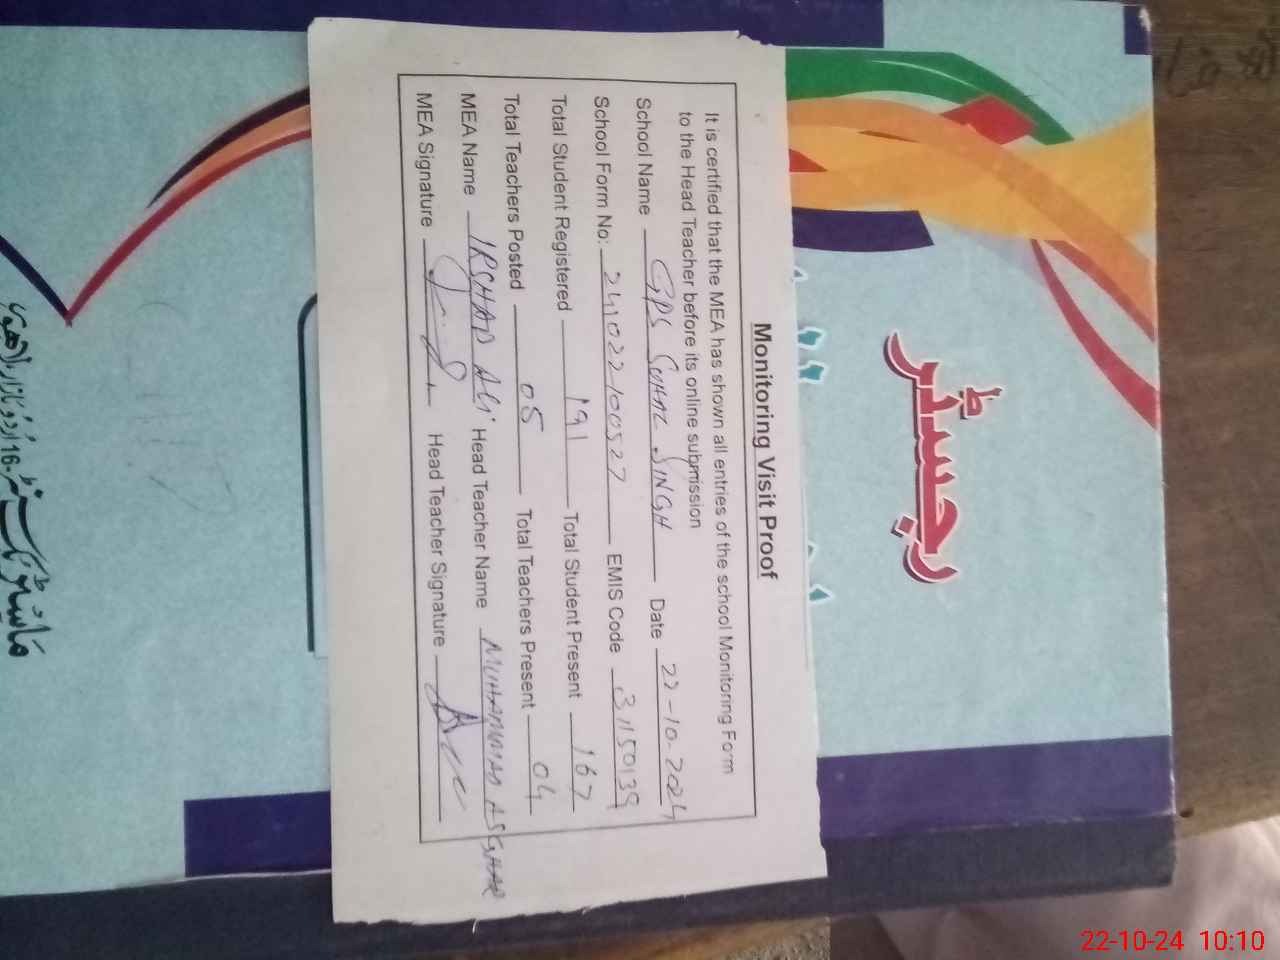 Monitoring Visit Proof
It is certified that the MEA has shown all entries of the school Monitoring Form
to the Head Teacher before its online submission
School Name GPS SUHAL SINGH Date 22-10-2024
School Form No: 241022100527 EMIS Code 31150139
Total Student Registered 191 Total Student Present 167
Total Teachers Posted 05 Total Teachers Present 04
MEA Name IRSHAD Ali Head Teacher Name MUHAMMAD ASGHAR
MEA Signature Head Teacher Signature
رجسٹر
16 اردو بازار لاھور
22-10-24 10:10